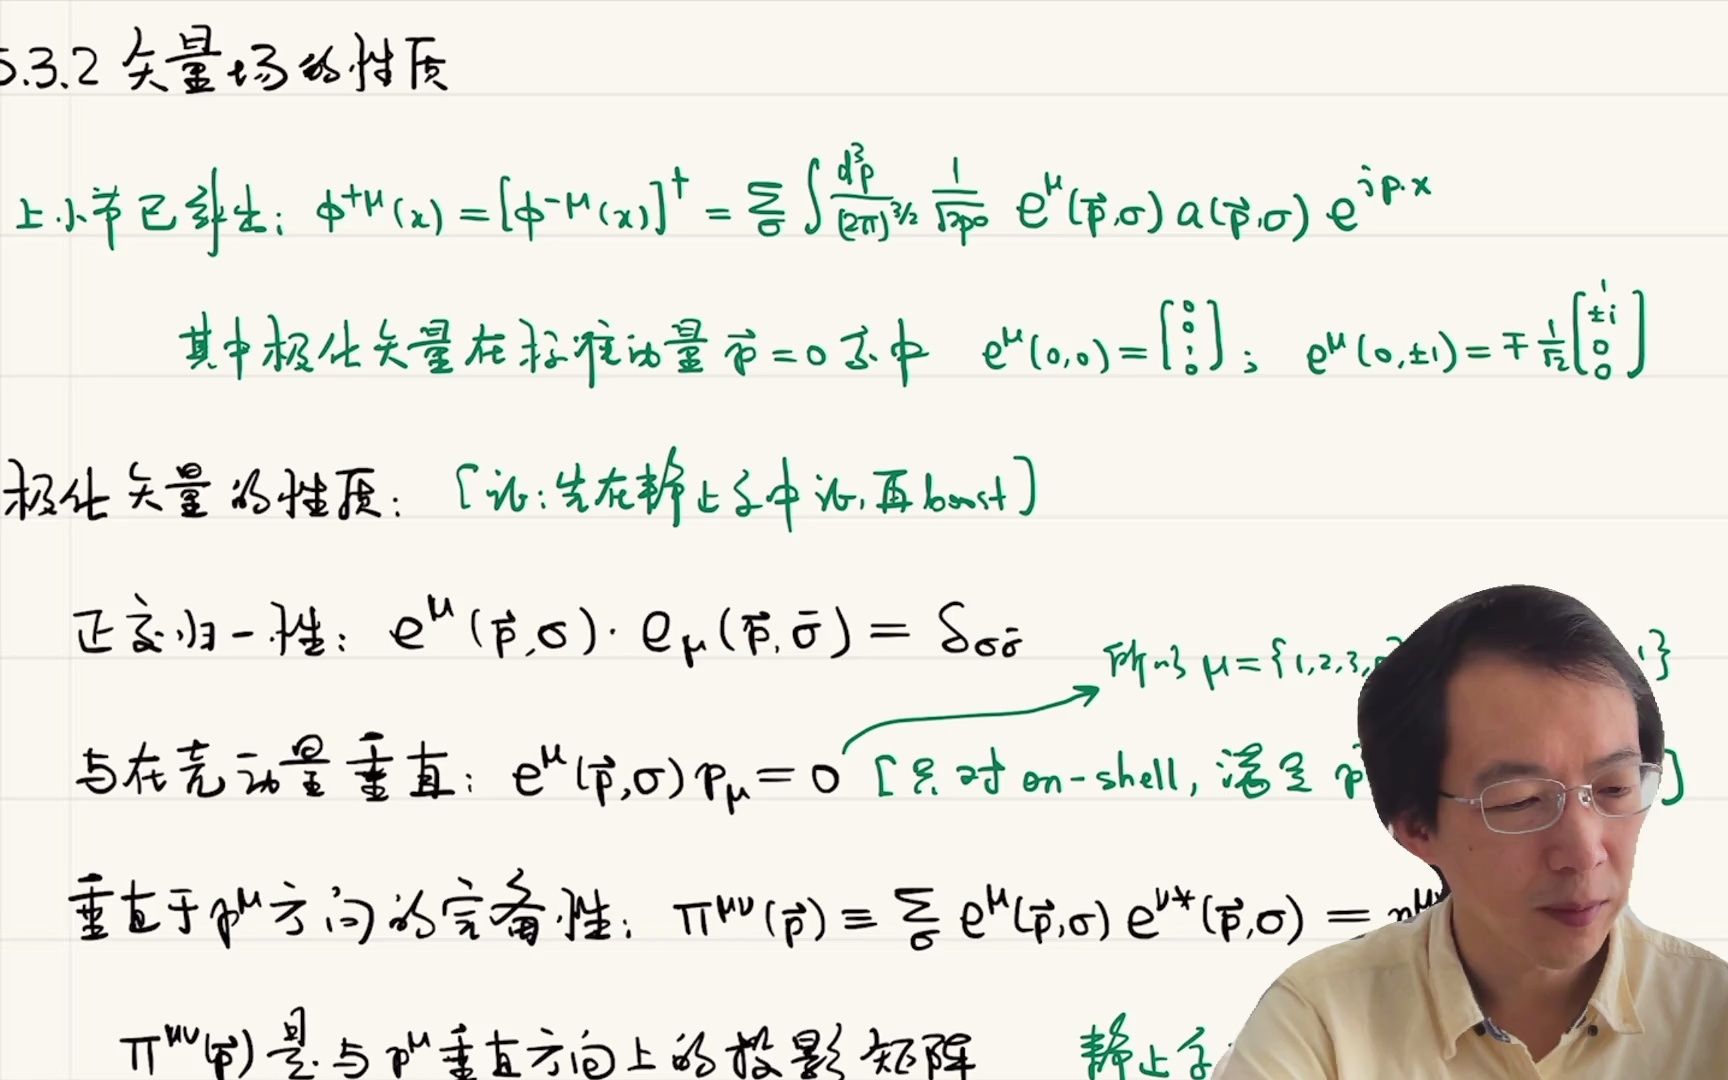 5.3.2 矢量场的性质
上小节已给出: φ⁺ᵘ(x) = [φ⁻ᵘ(x)]† = Σ_σ ∫ d³p/(2π)^{3/2} 1/√2p⁰ e^μ(p⃗,σ) a(p⃗,σ) e^{ip·x}
其中极化矢量在标准动量 p⃗ = 0 系中 e^μ(0,0) = [0 0 1 0]; e^μ(0,±1) = ∓ 1/√2 [1 ±i 0 0]
极化矢量的性质: [证: 先在静止系中证, 再boost]
正交归一性: e^μ(p⃗,σ)· e_μ(p⃗,σ̄) = δ_{σσ̄}
所以 μ = {1,2,3, 1}
与在壳动量垂直: e^μ(p⃗,σ) p_μ = 0 [只对 on-shell, 满足 p ]
垂直于 p^μ 方向的完备性: Π^{μν}(p⃗) ≡ Σ_σ e^μ(p⃗,σ) e^{ν*}(p⃗,σ) = η^{μν}
Π^{μν}(p⃗) 是与 p^μ 垂直方向上的投影矩阵 静止系